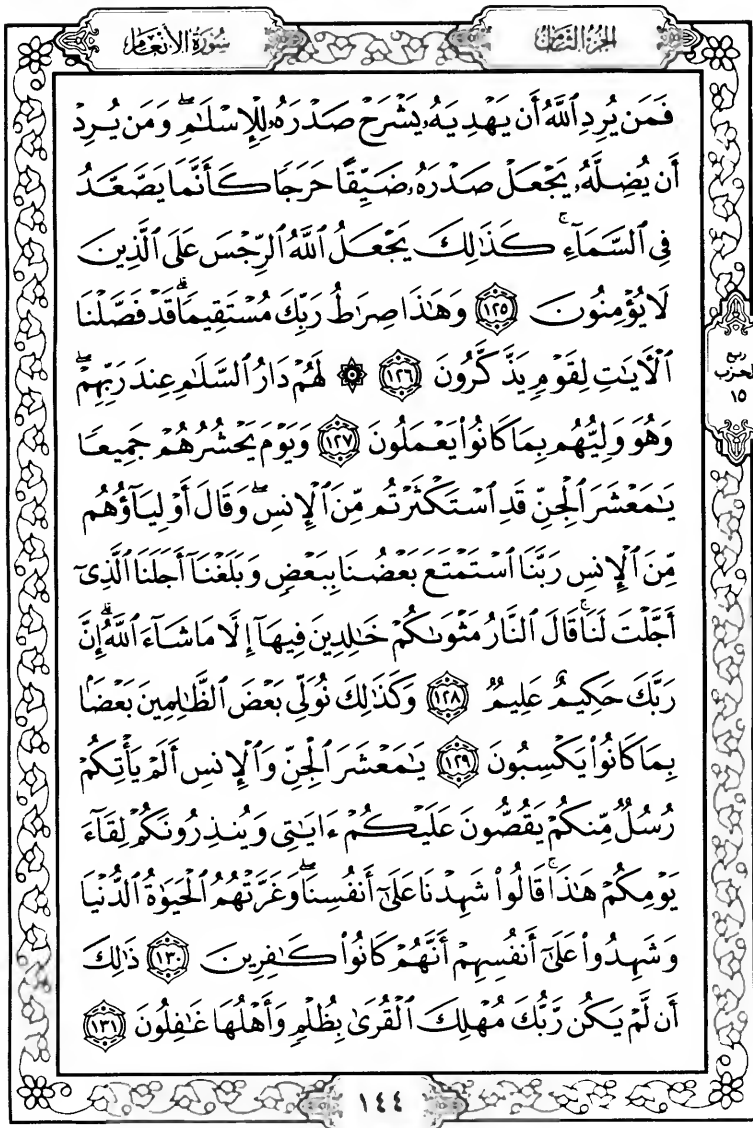 سُورَةُ الأَنْعَامِ
الجُزءُ الثَّامِنُ
فَمَن يُرِدِ ٱللَّهُ أَن يَهْدِيَهُۥ يَشْرَحْ صَدْرَهُۥ لِلْإِسْلَٰمِ ۖ وَمَن يُرِدْ
أَن يُضِلَّهُۥ يَجْعَلْ صَدْرَهُۥ ضَيِّقًا حَرَجًا كَأَنَّمَا يَصَّعَّدُ
فِى ٱلسَّمَآءِ ۚ كَذَٰلِكَ يَجْعَلُ ٱللَّهُ ٱلرِّجْسَ عَلَى ٱلَّذِينَ
لَا يُؤْمِنُونَ ١٢٥ وَهَٰذَا صِرَٰطُ رَبِّكَ مُسْتَقِيمًا ۗ قَدْ فَصَّلْنَا
ٱلْءَايَٰتِ لِقَوْمٍ يَذَّكَّرُونَ ١٢٦ ۞ لَهُمْ دَارُ ٱلسَّلَٰمِ عِندَ رَبِّهِمْ ۖ
وَهُوَ وَلِيُّهُم بِمَا كَانُوا۟ يَعْمَلُونَ ١٢٧ وَيَوْمَ يَحْشُرُهُمْ جَمِيعًا
يَٰمَعْشَرَ ٱلْجِنِّ قَدِ ٱسْتَكْثَرْتُم مِّنَ ٱلْإِنسِ ۖ وَقَالَ أَوْلِيَآؤُهُم
مِّنَ ٱلْإِنسِ رَبَّنَا ٱسْتَمْتَعَ بَعْضُنَا بِبَعْضٍ وَبَلَغْنَآ أَجَلَنَا ٱلَّذِىٓ
أَجَّلْتَ لَنَا ۚ قَالَ ٱلنَّارُ مَثْوَىٰكُمْ خَٰلِدِينَ فِيهَآ إِلَّا مَا شَآءَ ٱللَّهُ ۗ إِنَّ
رَبَّكَ حَكِيمٌ عَلِيمٌ ١٢٨ وَكَذَٰلِكَ نُوَلِّى بَعْضَ ٱلظَّٰلِمِينَ بَعْضًۢا
بِمَا كَانُوا۟ يَكْسِبُونَ ١٢٩ يَٰمَعْشَرَ ٱلْجِنِّ وَٱلْإِنسِ أَلَمْ يَأْتِكُمْ
رُسُلٌ مِّنكُمْ يَقُصُّونَ عَلَيْكُمْ ءَايَٰتِى وَيُنذِرُونَكُمْ لِقَآءَ
يَوْمِكُمْ هَٰذَا ۚ قَالُوا۟ شَهِدْنَا عَلَىٰٓ أَنفُسِنَا ۖ وَغَرَّتْهُمُ ٱلْحَيَوٰةُ ٱلدُّنْيَا
وَشَهِدُوا۟ عَلَىٰٓ أَنفُسِهِمْ أَنَّهُمْ كَانُوا۟ كَٰفِرِينَ ١٣٠ ذَٰلِكَ
أَن لَّمْ يَكُن رَّبُّكَ مُهْلِكَ ٱلْقُرَىٰ بِظُلْمٍ وَأَهْلُهَا غَٰفِلُونَ ١٣١
ربع
الحزب
١٥
١٤٤